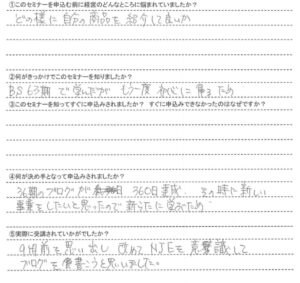 ①このセミナーを申込む前に経営のどんなところに悩まれていましたか？
どの様に自分の商品を紹介して良いか
②何がきっかけでこのセミナーを知りましたか？
BS63期で学んだが もう一度 初心に帰るため
③このセミナーを知ってすぐに申込みされましたか？ すぐに申込みできなかったのはなぜですか？
④何が決め手となって申込みされましたか？
36期のブログが 360日達成 その時に新しい
事業をしたいと思ったので新らたに学ぶため
⑤実際に受講されていかがでしたか？
9年前を思い出し 改めてNJEを意識して
ブログを書こうと思いました。